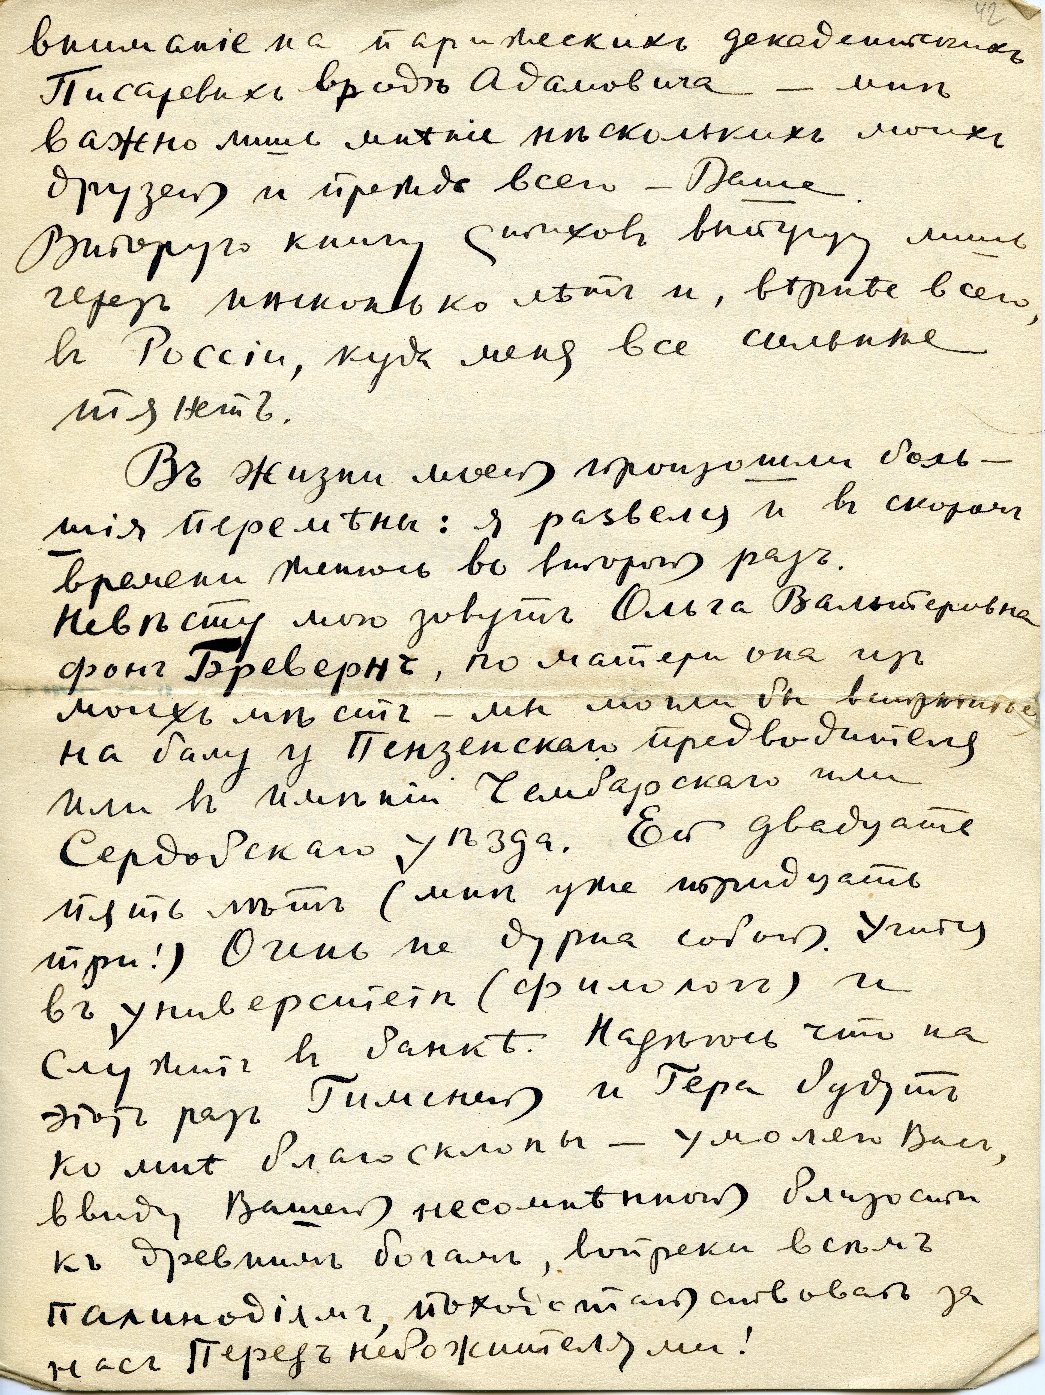 42
вниманіе на парижескихъ декадентскихъ
Писаревихъ вродѣ Адамовича — мнѣ
важно лишь мнѣніе нѣсколькихъ моихъ
друзей и прежде всего — Ваше.
Вторую книгу стиховъ выпущу лишь
черезъ нѣсколько лѣтъ и, вѣрнѣе всего,
въ Россіи, куда меня все сильнѣе
тянетъ.
Въ жизни моей произошли боль–
шія перемѣны: я развелся и въ скоромъ
времени женюсь во второй разъ.
Невѣсту мою зовутъ Ольга Вальтеровна
фонъ Бревернъ, по матери она изъ
моихъ мѣстъ – мы могли бы встрѣтиться
на балу у Пензенскаго предводителя
или въ имѣніи Чембарскаго или
Сердобскаго уѣзда. Ей двадцать
пять лѣтъ (мнѣ уже тридцать
три!) Очень не дурна собой. Учится
въ университетѣ (филологъ) и
служитъ въ банкѣ. Надѣюсь что на
этотъ разъ Гименей и Гера будутъ
ко мнѣ благосклонны — умоляю Васъ,
ввиду Вашей несомнѣнной близости
къ древнимъ богамъ, вопреки всѣмъ
палинодіямъ, походатайствовать за
насъ передъ небожителями!